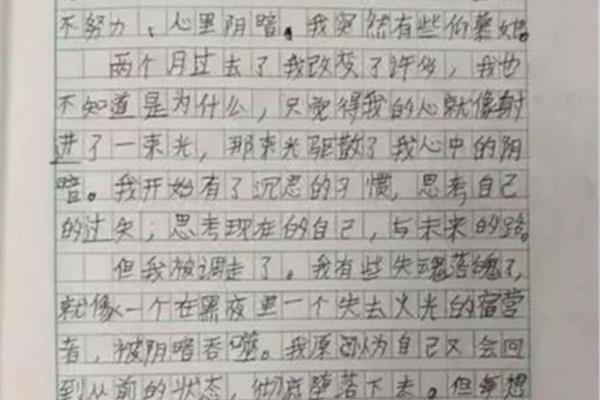 不努力、心里阴暗。我突然有些仰慕她。
两个月过去了我改变了许多，我也
不知道是为什么，只觉得我的心就像射
进了一束光，那束光驱散了我心中的阴
暗。我开始有了沉思的习惯，思考自己
的过失；思考现在的自己，与未来的路。
但我被调走了。我有些失魂落魄了，
就像一个在黑夜里一个失去火光的宿营
者，被阴暗吞噬。我原以为自己又会回
到从前的状态，彻底堕落下去。但每想